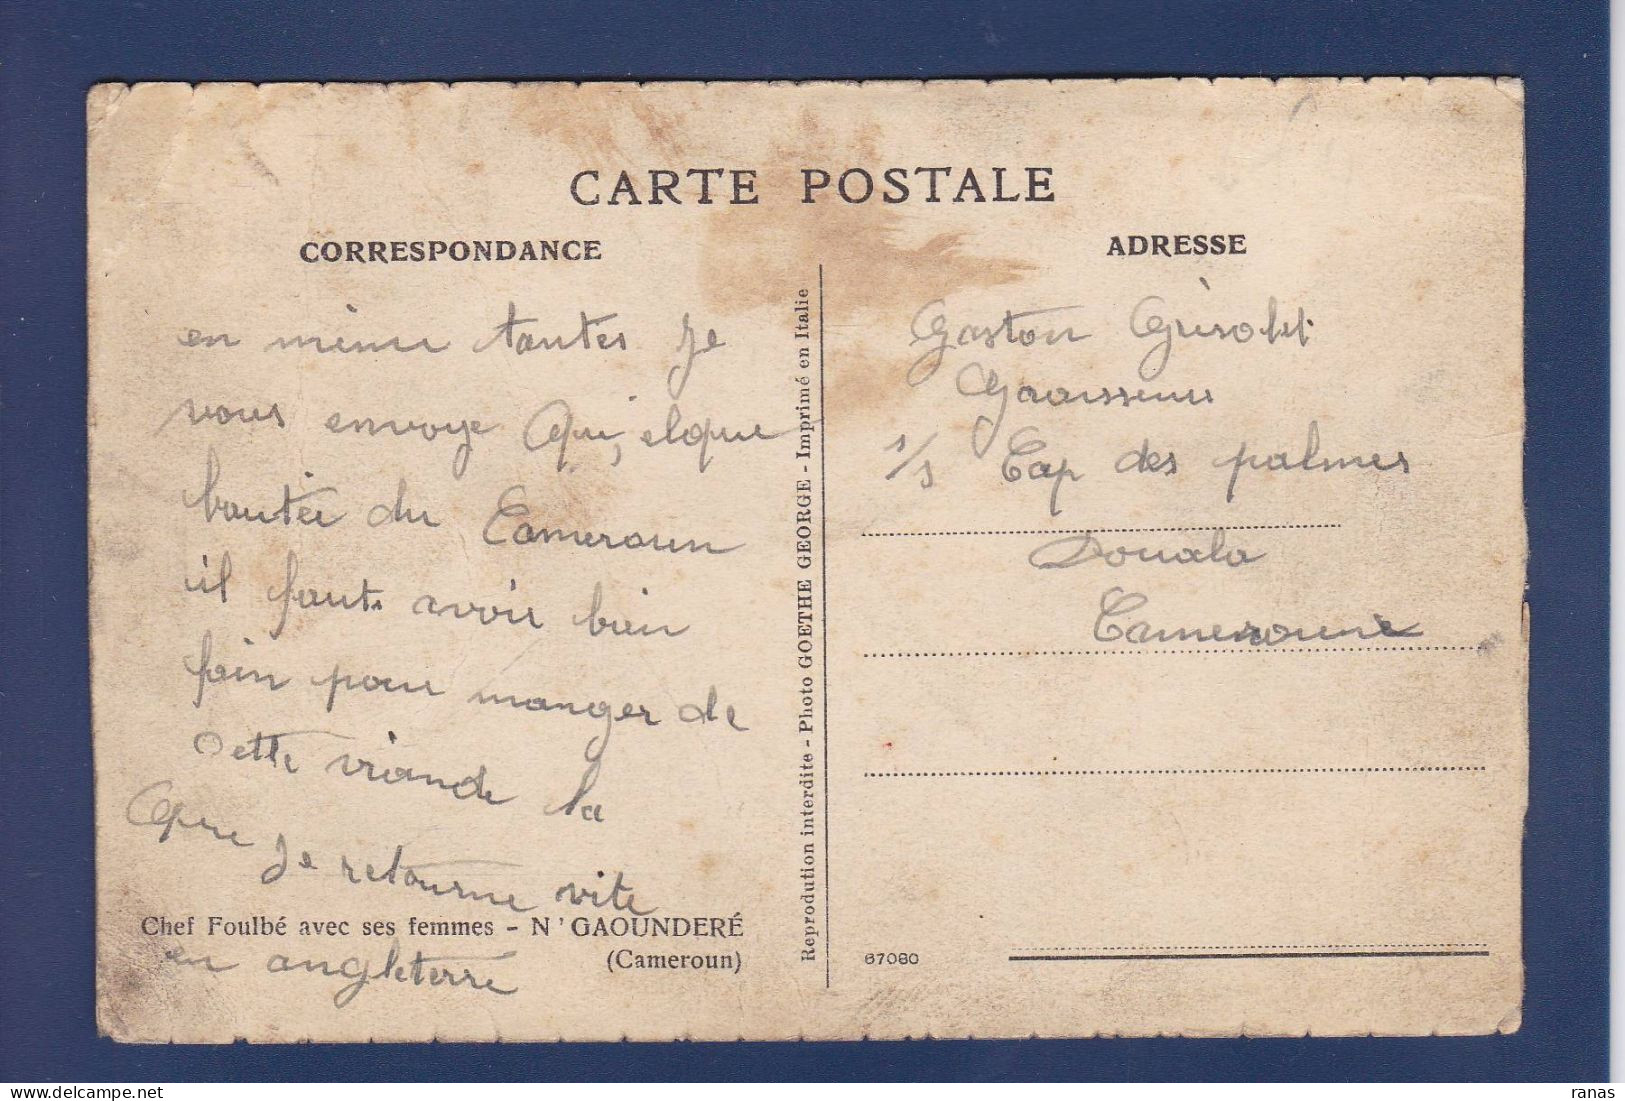 CARTE POSTALE
CORRESPONDANCE
en même tantes je
vous envoye qui, elque
bautér du Cameroun
il faut avoir bien
fain pour manger de
cette viande la
que je retourne vite
en angleterre
Chef Foulbé avec ses femmes - N'GAOUNDERÉ
(Cameroun)
Reproduction interdite - Photo GOETHE GEORGE - Imprimé en Italie
ADRESSE
Gaston
s/s Cap des palmes
Douala
Cameroune
67080
ranas